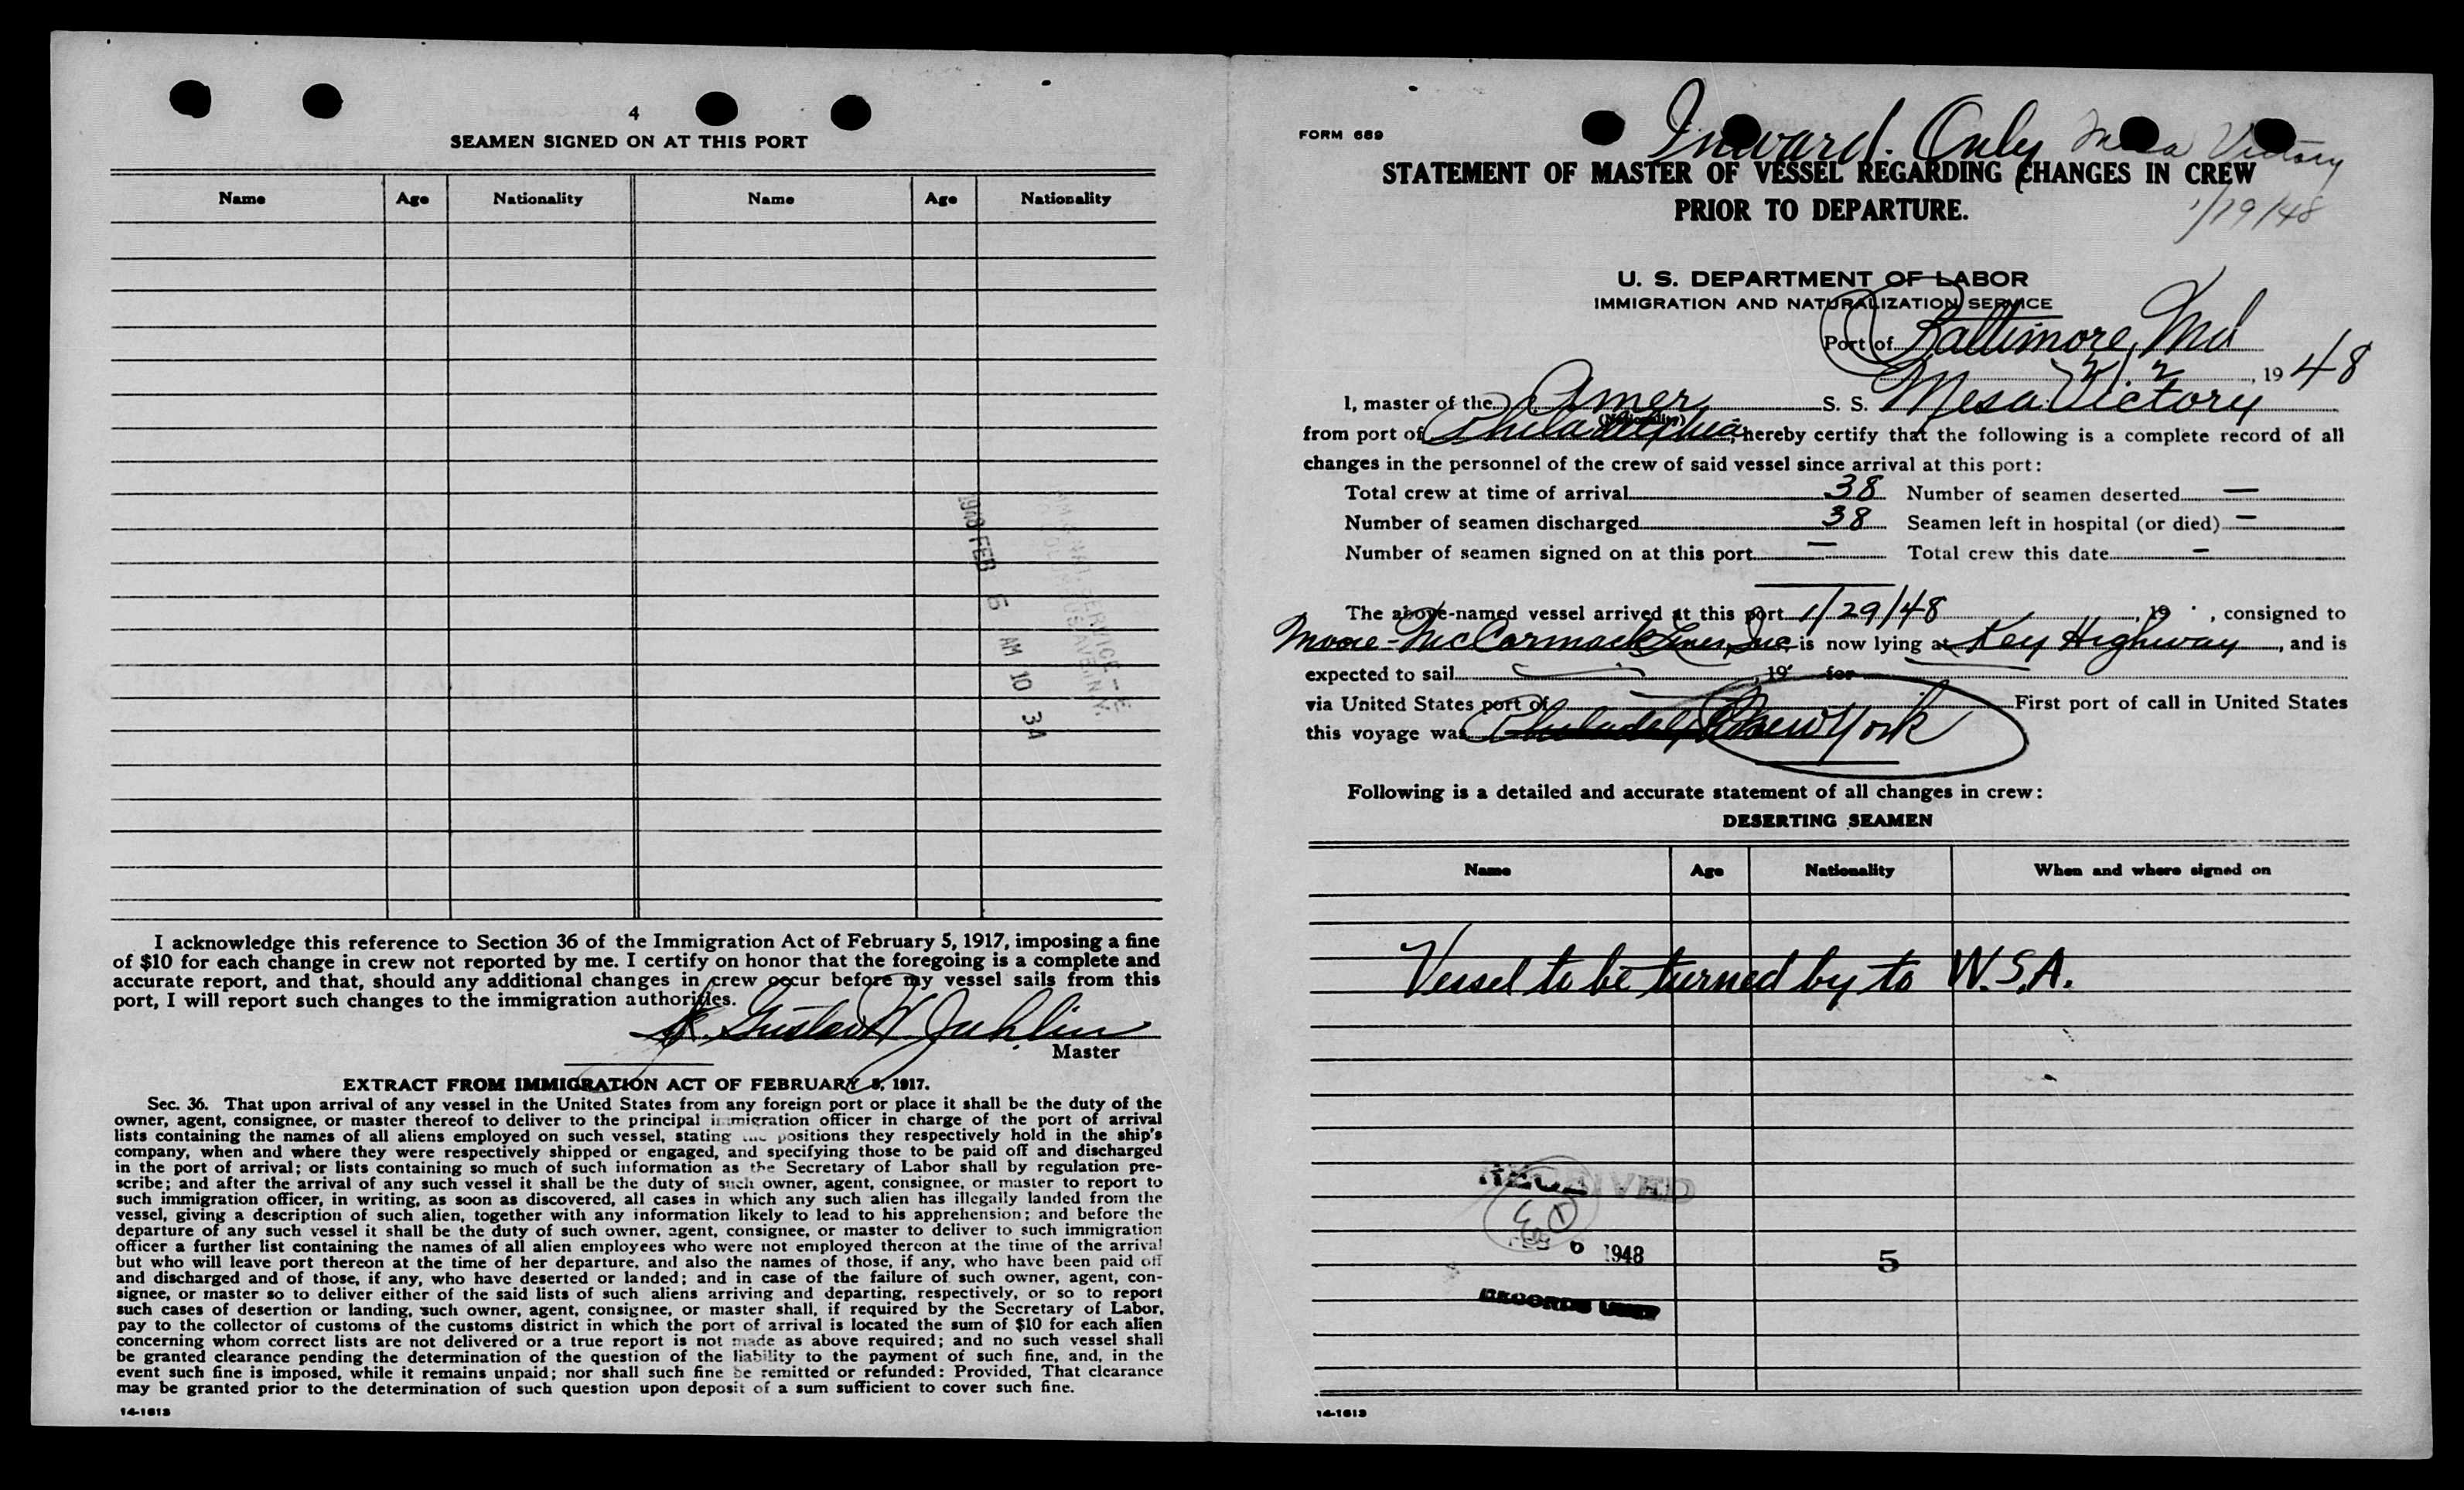 4
SEAMEN SIGNED ON AT THIS PORT
Name Age Nationality Name Age Nationality
1948 FEB 6 AM 10 34
I acknowledge this reference to Section 36 of the Immigration Act of February 5, 1917, imposing a fine
of $10 for each change in crew not reported by me. I certify on honor that the foregoing is a complete and
accurate report, and that, should any additional changes in crew occur before my vessel sails from this
port, I will report such changes to the immigration authorities.
Gustav W
Master
EXTRACT FROM IMMIGRATION ACT OF FEBRUARY 5, 1917.
Sec. 36. That upon arrival of any vessel in the United States from any foreign port or place it shall be the duty of the
owner, agent, consignee, or master thereof to deliver to the principal immigration officer in charge of the port of arrival
lists containing the names of all aliens employed on such vessel, stating the positions they respectively hold in the ship's
company, when and where they were respectively shipped or engaged, and specifying those to be paid off and discharged
in the port of arrival; or lists containing so much of such information as the Secretary of Labor shall by regulation pre-
scribe; and after the arrival of any such vessel it shall be the duty of such owner, agent, consignee, or master to report to
such immigration officer, in writing, as soon as discovered, all cases in which any such alien has illegally landed from the
vessel, giving a description of such alien, together with any information likely to lead to his apprehension; and before the
departure of any such vessel it shall be the duty of such owner, agent, consignee, or master to deliver to such immigration
officer a further list containing the names of all alien employees who were not employed thereon at the time of the arrival
but who will leave port thereon at the time of her departure, and also the names of those, if any, who have been paid off
and discharged and of those, if any, who have deserted or landed; and in case of the failure of such owner, agent, con-
signee, or master so to deliver either of the said lists of such aliens arriving and departing, respectively, or so to report
such cases of desertion or landing, such owner, agent, consignee, or master shall, if required by the Secretary of Labor,
pay to the collector of customs of the customs district in which the port of arrival is located the sum of $10 for each alien
concerning whom correct lists are not delivered or a true report is not made as above required; and no such vessel shall
be granted clearance pending the determination of the question of the liability to the payment of such fine, and, in the
event such fine is imposed, while it remains unpaid; nor shall such fine be remitted or refunded: Provided, That clearance
may be granted prior to the determination of such question upon deposit of a sum sufficient to cover such fine.
14-1613
FORM 689
Inward. Only Mesa Victory
STATEMENT OF MASTER OF VESSEL REGARDING CHANGES IN CREW
PRIOR TO DEPARTURE.
1/19/48
U. S. DEPARTMENT OF LABOR
IMMIGRATION AND NATURALIZATION SERVICE
Port of Baltimore, Md
2/2, 1948
I, master of the Amer S. S. Mesa Victory
(Nationality)
from port of Philadelphia, hereby certify that the following is a complete record of all
changes in the personnel of the crew of said vessel since arrival at this port:
Total crew at time of arrival 38 Number of seamen deserted —
Number of seamen discharged 38 Seamen left in hospital (or died) —
Number of seamen signed on at this port — Total crew this date —
The above-named vessel arrived at this port 1/29/48, 19 , consigned to
Moore-McCormack Lines, Inc, is now lying at Key Highway, and is
expected to sail —, 19 for
via United States port of — First port of call in United States
this voyage was Philadelphia New York
Following is a detailed and accurate statement of all changes in crew:
DESERTING SEAMEN
Name Age Nationality When and where signed on
Vessel to be turned by to W.S.A.
RECEIVED
FEB 6 1948
5
RECORDS UNIT
14-1613